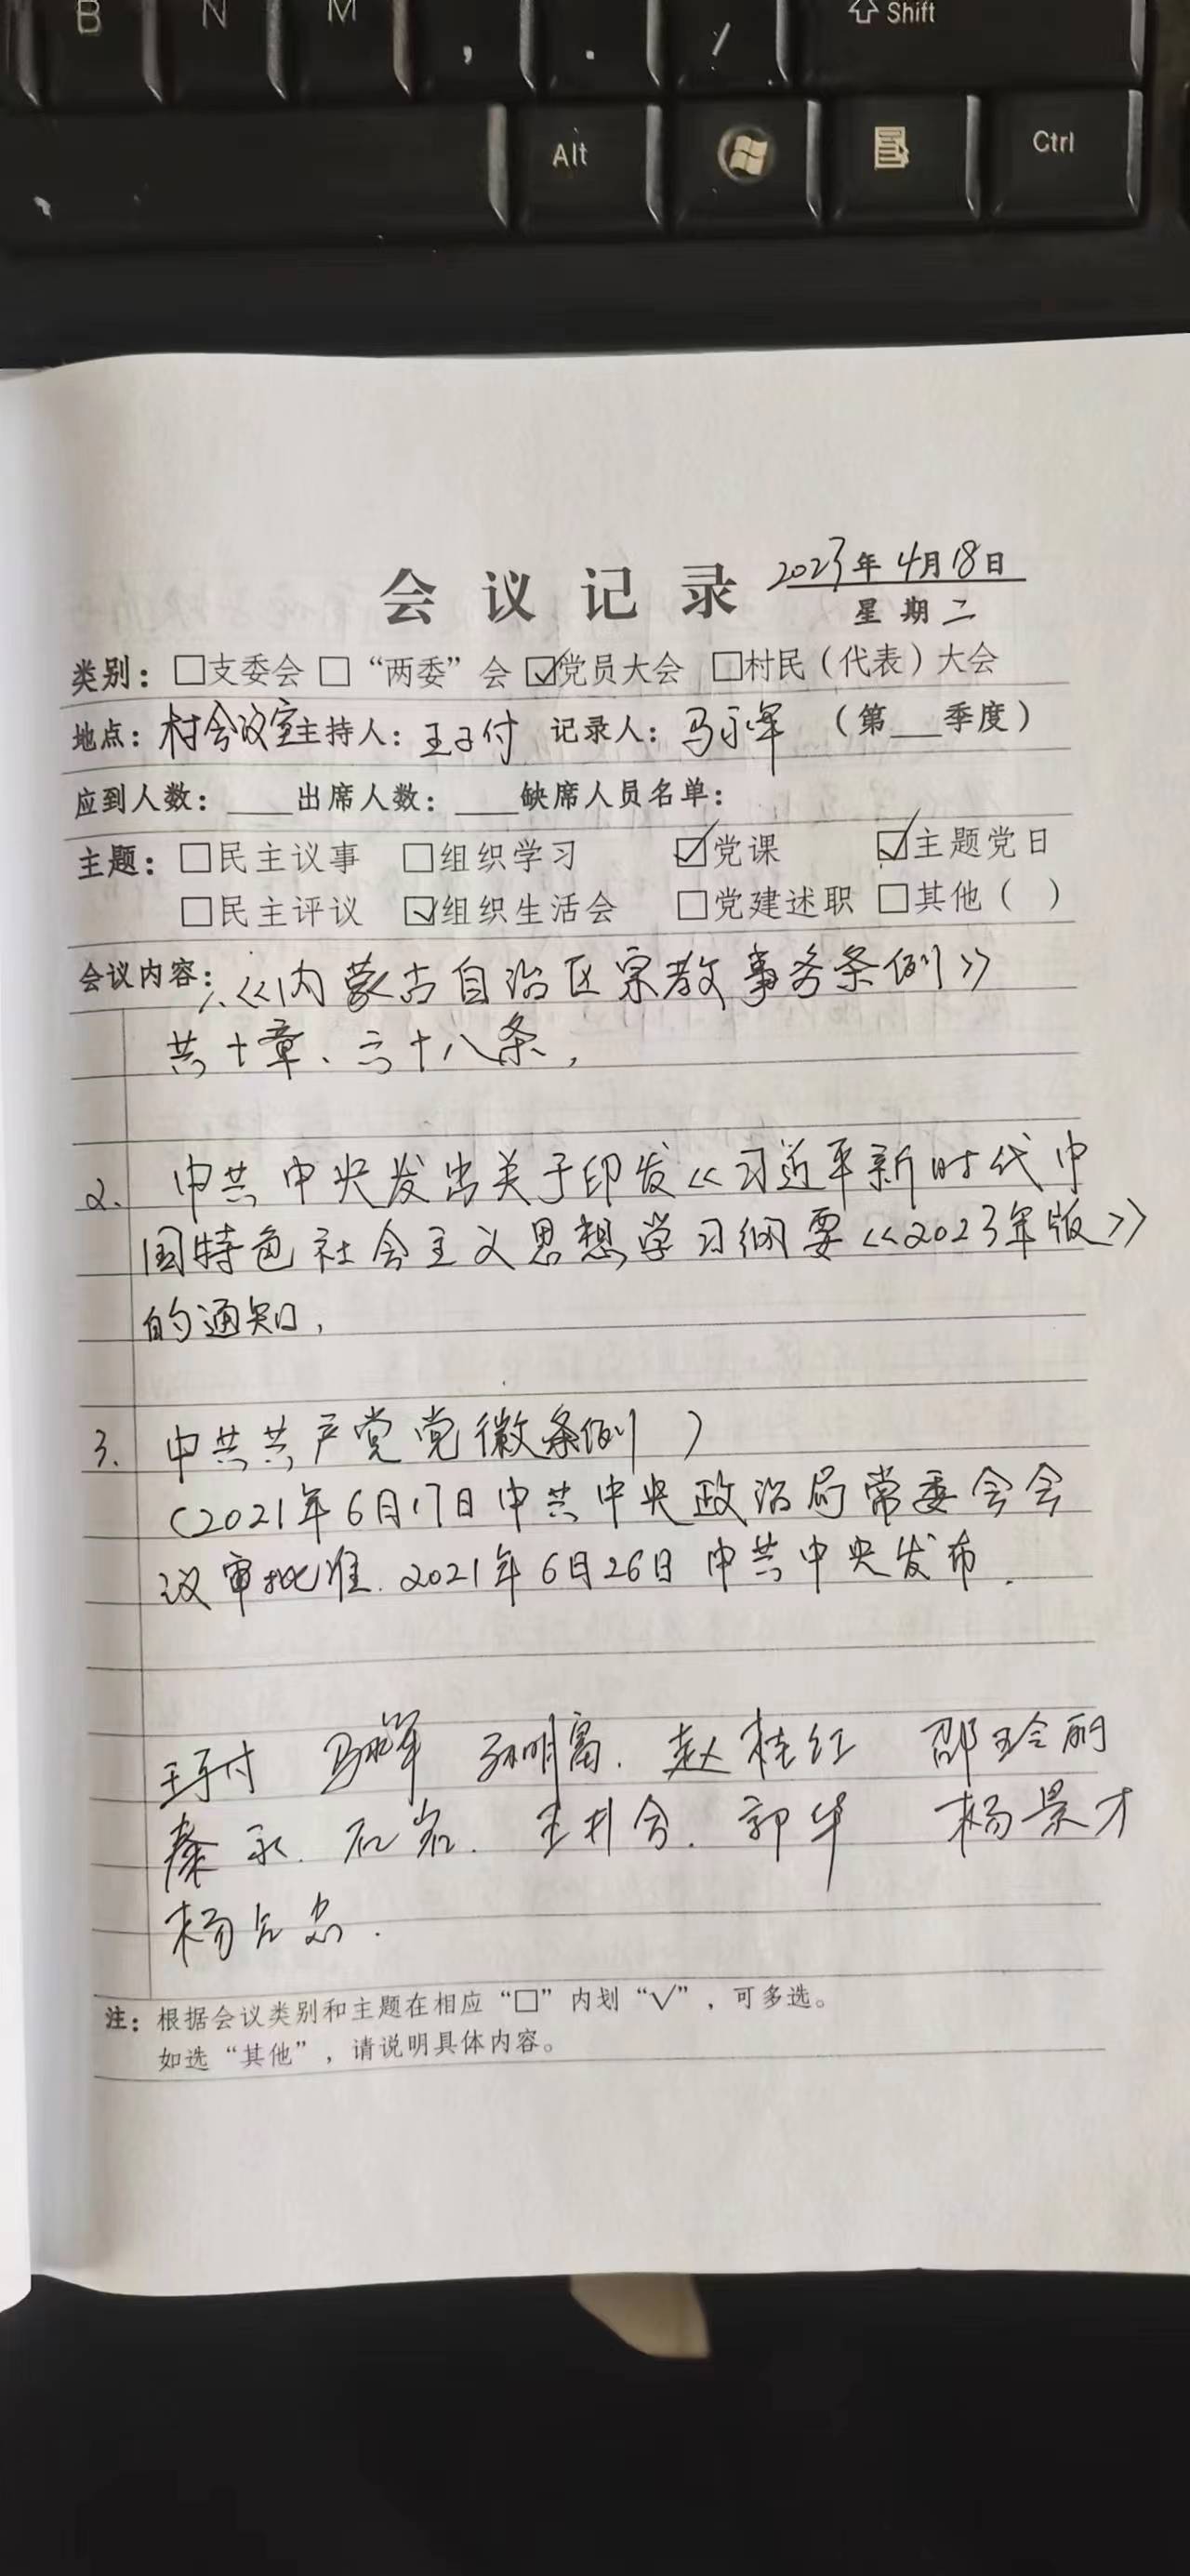 B N M , . / Shift
Alt Ctrl
会议记录 2023年4月18日
星期二
类别：□支委会 □“两委”会 ☑党员大会 □村民（代表）大会
地点：村会议室 主持人：王子付 记录人：马永军 （第 季度）
应到人数： 出席人数： 缺席人员名单：
主题：□民主议事 □组织学习 ☑党课 ☑主题党日
□民主评议 ☑组织生活会 □党建述职 □其他（ ）
会议内容：1.《内蒙古自治区宗教事务条例》
共十章、六十八条，
2. 中共中央发出关于印发《习近平新时代中
国特色社会主义思想学习纲要《2023年版》
的通知，
3. 中共共产党党徽条例）
（2021年6月17日中共中央政治局常委会会
议审批准.2021年6月26日中共中央发布.
王子付 孙明富. 赵桂红 邵玲丽
秦永. 石岩. 郭华 杨景才
杨 忠.
注：根据会议类别和主题在相应“□”内划“√”，可多选。
如选“其他”，请说明具体内容。